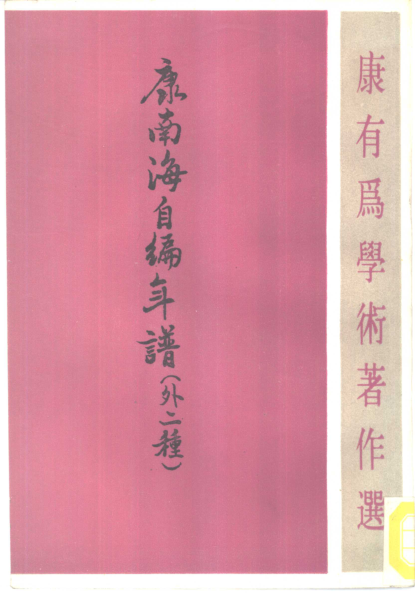 康有爲學術著作選
康南海自編年譜(外二種)